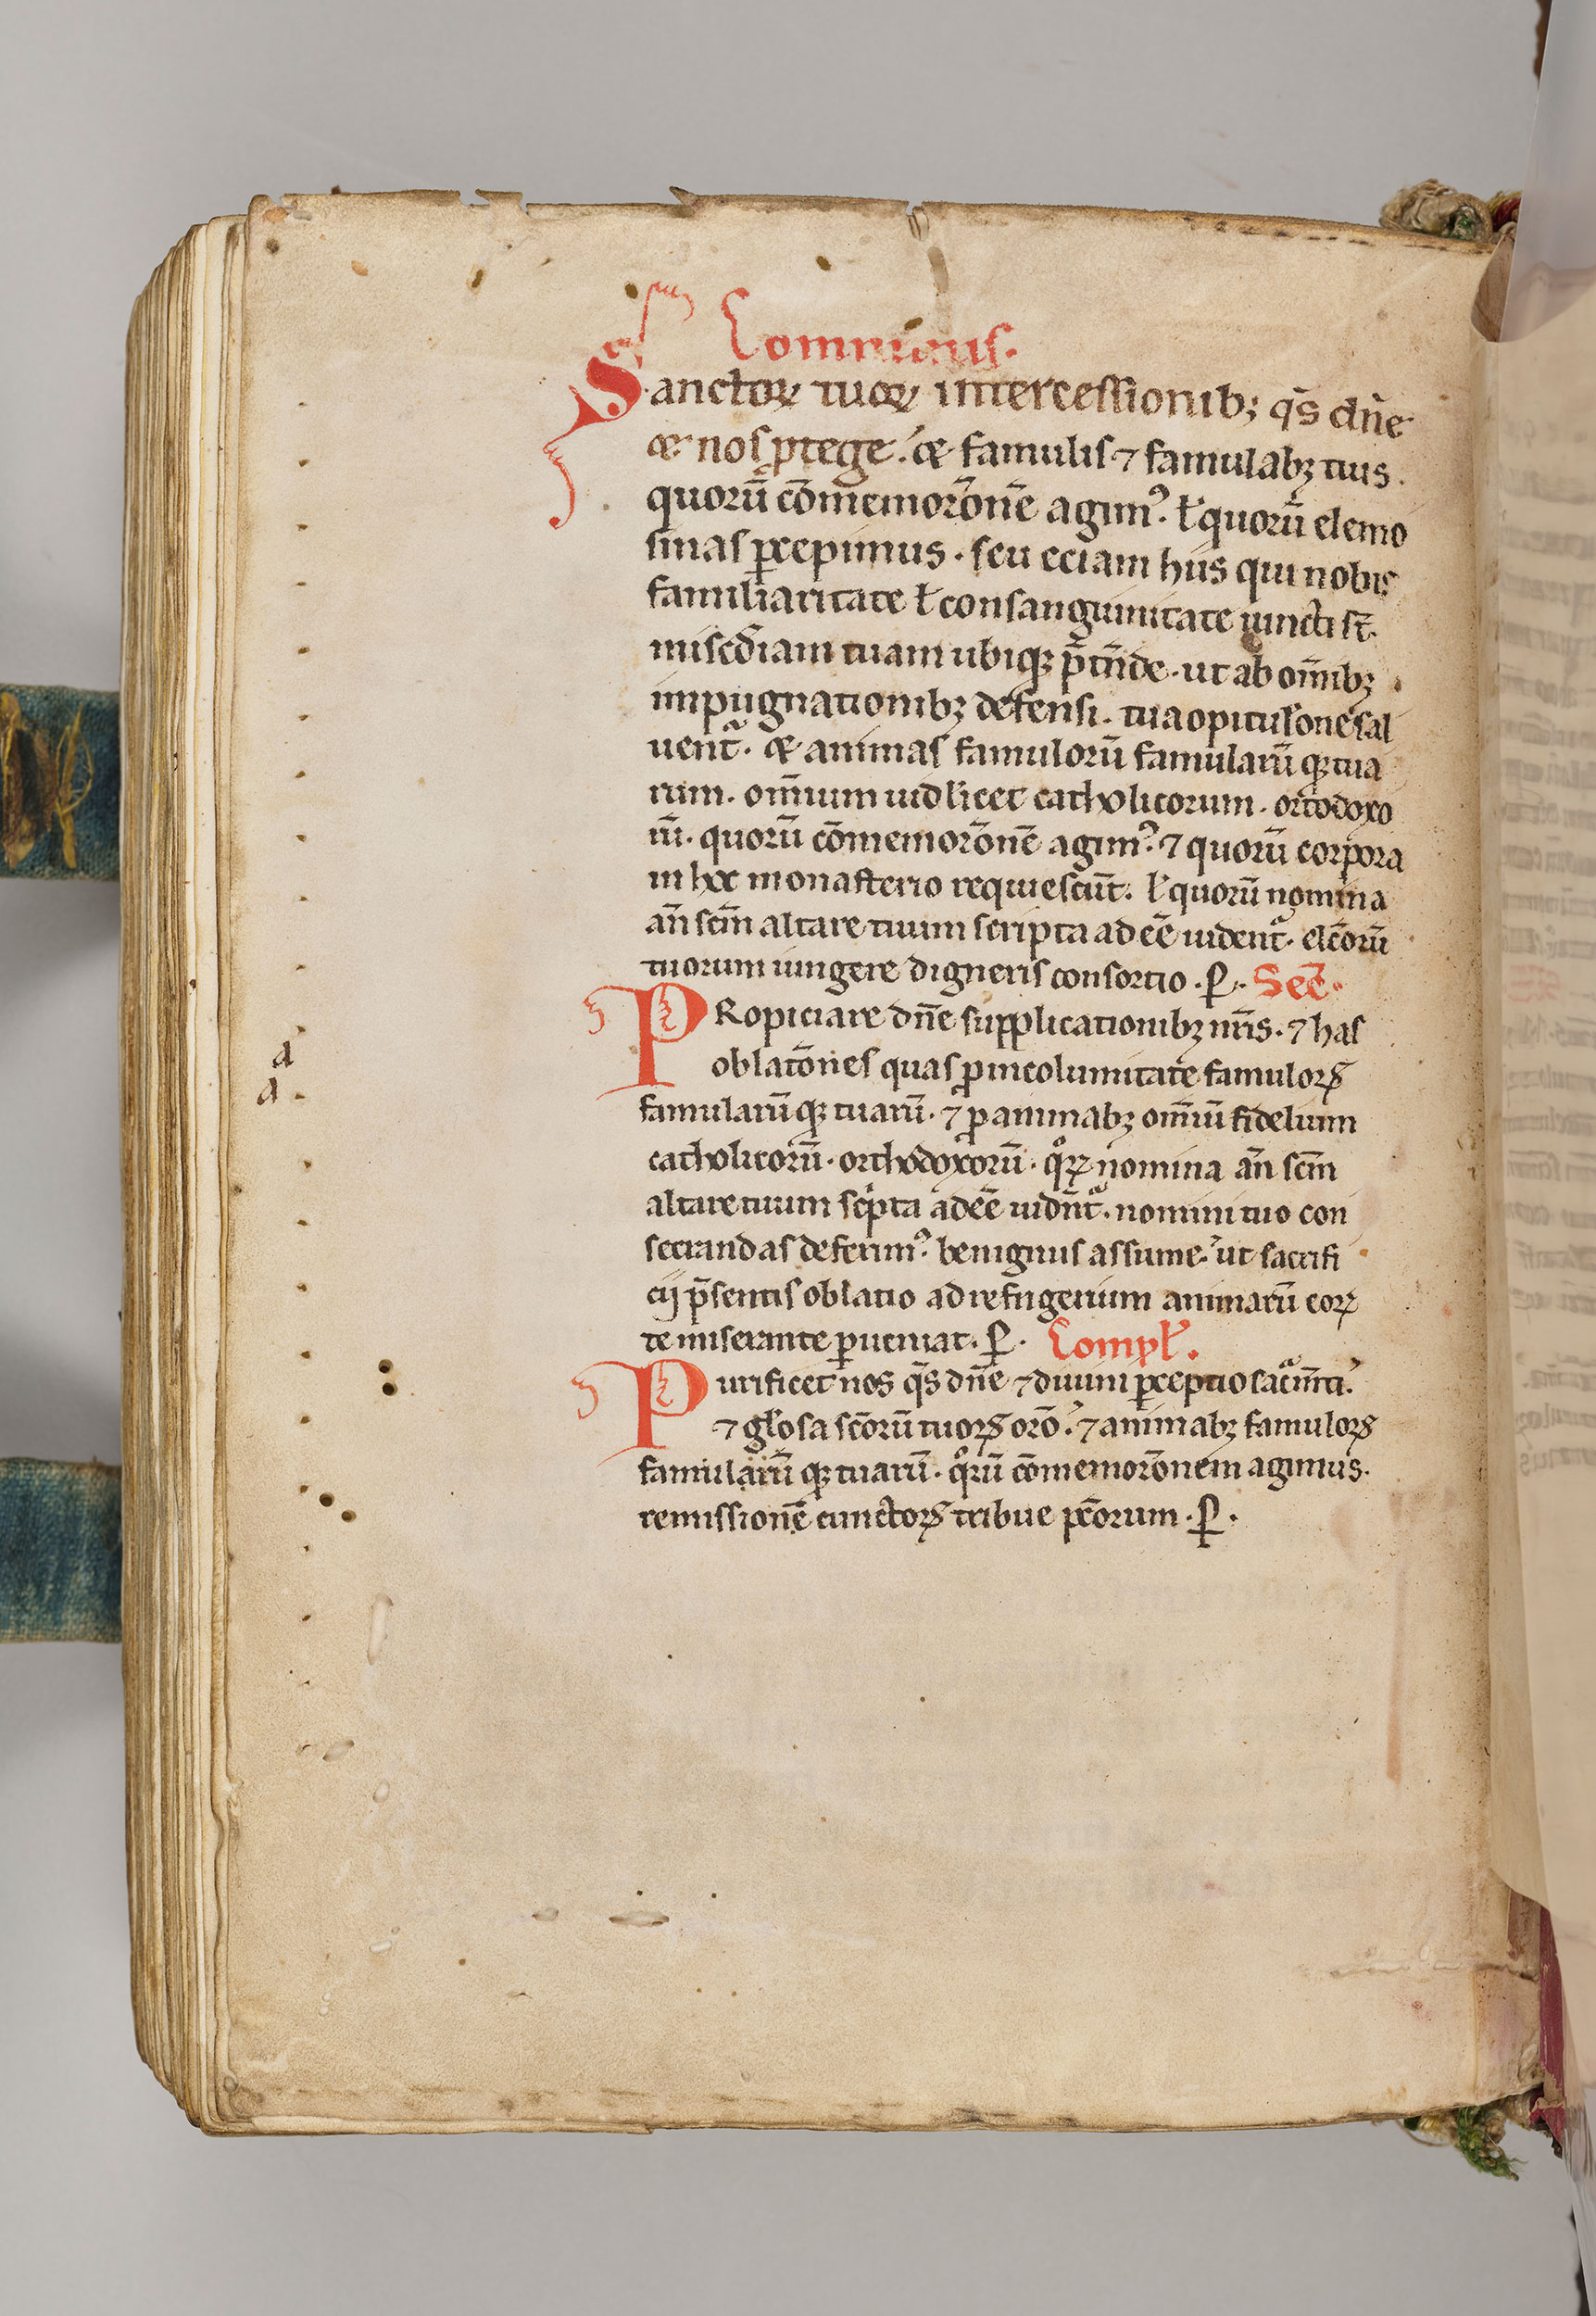 Com̄unis.
Sanctoꝝ tuoꝝ intercessionib; q̄s dn̄e
et nos ꝓtege. et famulis ⁊ famulabꝫ tuis.
quorū cōmemorōnē agimꝰ. ł quorū elemo
sinas ꝑcepimus. seu eciam hiis qui nobis
familiaritate ł consanguinitate iuncti st̄.
miscd̄iam tuam ubiqꝫ p̄tn̄de. ut ab om̄ibꝫ
impugnationibꝫ defensi. tua opitulōne sal
uent᷑. et animas famulorū famularū qꝫ tua
rum. om̄ium uidlicet catholicorum. ortodoxo
rū. quorū cōmemorōnē agimꝰ. ⁊ quorū corpora
in hoc monasterio requiescūt. ł quorū nomina
an̄ scm̄ altare tuum scripta adeē uident᷑. elc̄orū
tuorum iungere digneris consortio. ꝑ. Sec̄.
PRopiciare dn̄e supplicationibꝫ nr̄is. ⁊ has
oblatōnes quas ꝓ incolumitate famuloꝝ
famularū qꝫ tuarū. ⁊ ꝓ animabꝫ om̄iū fidelium
catholicorū. orthodoxorū. qͦꝝ nomina an̄ scm̄
altare tuum scͥpta adeē uidn̄t᷑. nomini tuo con
secrandas deferimꝰ. benignus assume. ut sacrifi
cij p̄sentis oblatio ad refrigerium animarū eoꝝ
te miserante ꝑueniat. ꝑ. Compł.
Purificet nos q̄s dn̄e ⁊ diuini ꝑceptio sac̄mti.
⁊ glōsa sc̄orū tuoꝝ orō. ⁊ animabꝫ famuloꝝ
famularū qꝫ tuarū. qͦrū cōmemorōnem agimus.
remissionē cunctoꝝ tribue pc̄orum. ꝑ.
a
a